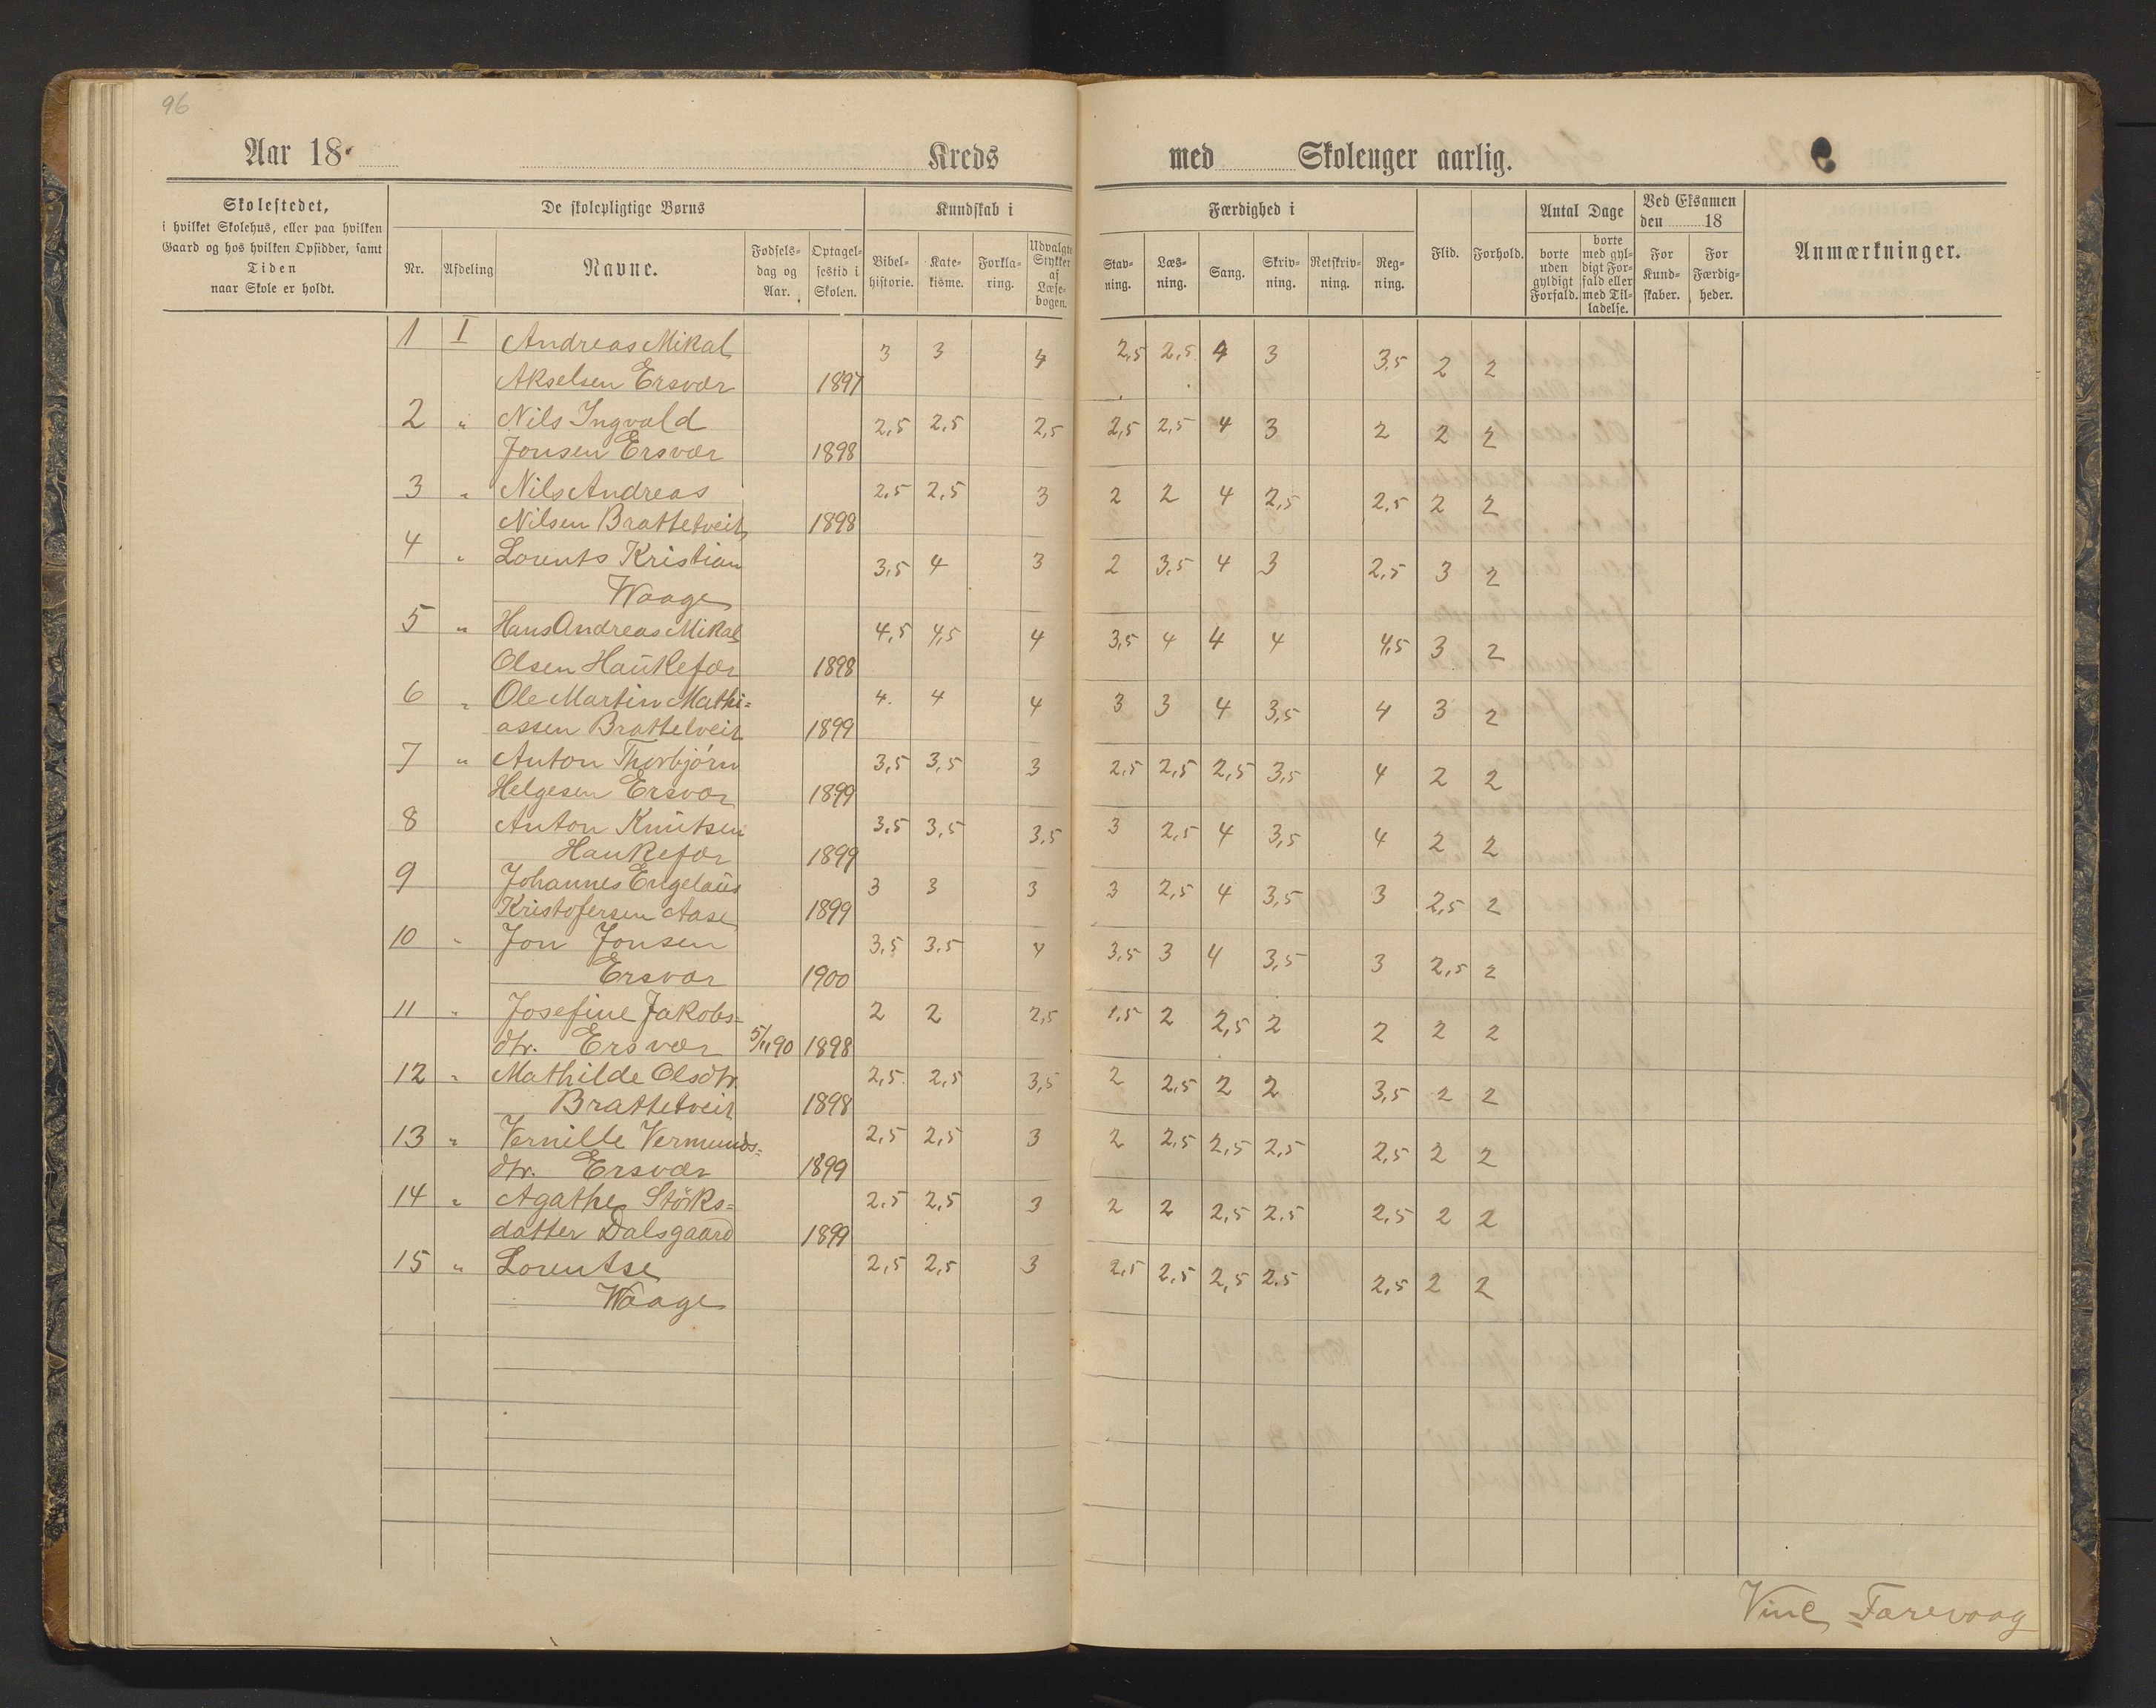 96
Aar 18
Kreds
med Skoleuger aarlig.
Skolestedet,
i hvilket Skolehus, eller paa hvilken
Gaard og hos hvilken Opsidder, samt
Tiden
naar Skole er holdt.
De skolepligtige Børns
Kundskab i
Færdighed i
Antal Dage
Ved Eksamen
den 18
Anmærkninger.
Nr.
Afdeling
Navne.
Fødsels-
dag og
Aar.
Optagel-
sestid i
Skolen.
Bibel-
historie.
Kate-
kisme.
Forkla-
ring.
Udvalgte
Stykker
af
Læse-
bogen.
Stav-
ning.
Læs-
ning.
Sang.
Skriv-
ning.
Retskriv-
ning.
Reg-
ning.
Flid.
Forhold.
borte
uden
gyldigt
Forfald.
borte
med gyl-
digt For-
fald eller
med Til-
ladelse.
For
Kund-
skaber.
For
Færdig-
heder.
1 I Andreas Mikal 3 3 4 2,5 2,5 4 3 3,5 2 2
Akselsen Ersvær 1897
2 " Nils Ingvald 2,5 2,5 2,5 2,5 2,5 4 3 2 2 2
Jonsen Ersvær 1898
3 " Nils Andreas 2,5 2,5 3 2 2 4 2,5 2,5 2 2
Nilsen Brattetveit 1898
4 " Lorents Kristian 3,5 4 3 2 3,5 4 3 2,5 3 2
Waage
5 " Hans Andreas Mikal 4,5 4,5 4 3,5 4 4 4 4,5 3 2
Olsen Haukefær 1898
6 " Ole Martin Mathi= 4. 4 4 3 3 4 3,5 4 3 2
assen Brattetveit 1899
7 " Anton Thorbjørn 3,5 3,5 3 2,5 2,5 2,5 3,5 4 2 2
Helgesen Ersvær 1899
8 Anton Knutsen 3,5 3,5 3,5 3 2,5 4 3,5 4 2 2
Haukefær 1899
9 Johannes Engelaus 3 3 3 3 2,5 4 3,5 3 2,5 2
Kristofersen Aase 1899
10 " Jon Jonsen 3,5 3,5 4 3,5 3 4 3,5 3 2,5 2
Ersvær 1900
11 " Josefine Jakobs= 2 2 2,5 1,5 2 2,5 2 2 2 2
dtr. Ersvær 5/11 90 1898
12 " Mathilde Olsdtr. 2,5. 2,5 3,5 2 2,5 2 2 3,5 2 2
Brattetveit 1898
13 " Vernille Vermunds= 2,5 2,5 3 2 2,5 2,5 2,5 2,5 2 2
dtr. Ersvær 1899
14 " Agathe Störks= 2,5 2,5 3 2 2 2,5 2,5 2,5 2 2
datter Dalsgaard 1899
15 " Lorentse 2,5 2,5 3 2,5 2,5 2,5 2,5 2,5 2 2
Waage
Vine Farevaag